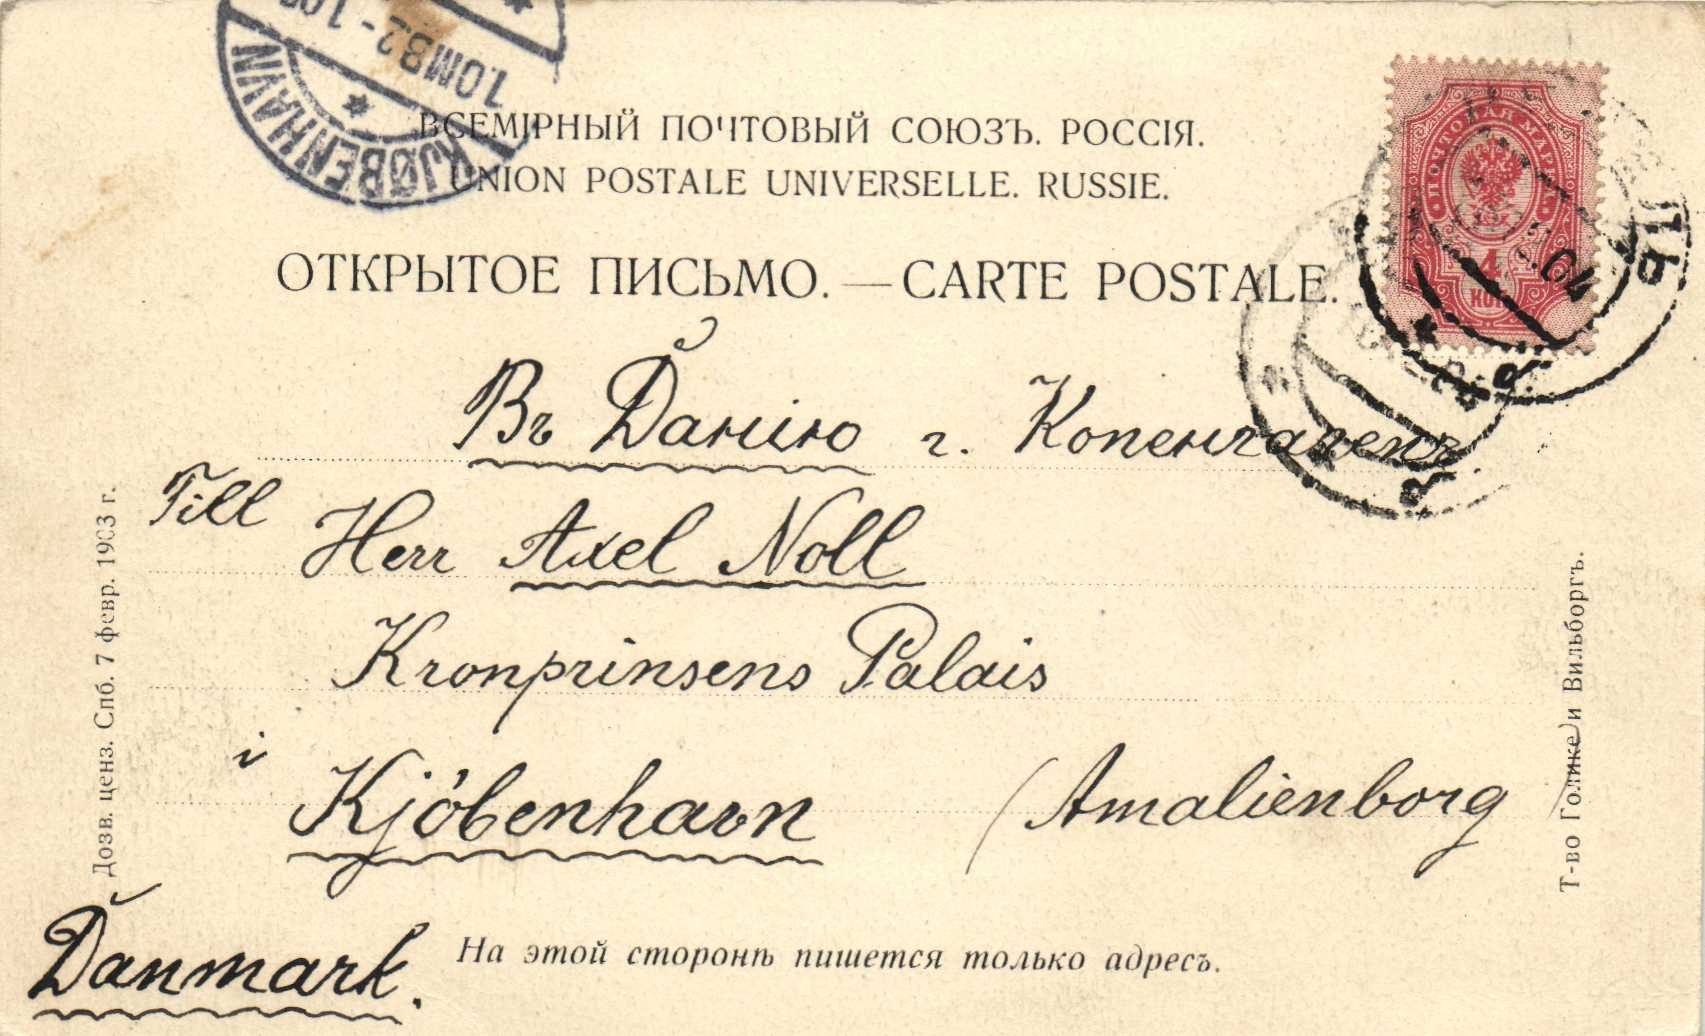 KJØBENHAVN
1.OMB.
ВСЕМІРНЫЙ ПОЧТОВЫЙ СОЮЗЪ. РОССІЯ.
UNION POSTALE UNIVERSELLE. RUSSIE.
ПОЧТОВАЯ МАРКА
4
КОП
04
ОТКРЫТОЕ ПИСЬМО. — CARTE POSTALE.
Въ Данію г. Копенгагенъ.
Till
Herr Axel Noll
Kronprinsens Palais
i
Kjöbenhavn (Amalienborg)
Danmark.
На этой сторонѣ пишется только адресъ.
Дозв. ценз. Спб. 7 февр. 1903 г.
Т-во Голике и Вильборгъ.